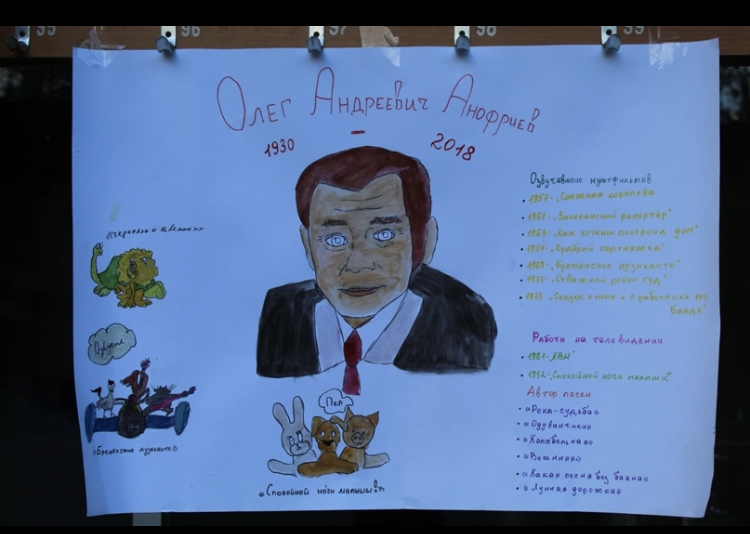 95 96 97 98 99
Олег Андреевич Анофриев
1930 - 2018
Озвучивание мультфильмов
• 1957- „Снежная королева
• 1961-
• 1963- „Как котёнку построили дом"
• 1964- „Храбрый портняжка"
• 1969- „Бременские музыканты"
• 1970- „Отважный робин гуд"
• 1973- „Сказка о попе и о работнике его
Балде"
Работы на телевидении
• 1961- „КВН"
• 1982- „Спокойной ночи малыши"
Автор песен
• «Река-судьба»
• «Одуванчик»
• «Колыбельная»
• «Весенняя»
• «Какая песня без баяна»
• «Лунная дорожка»
Озвучил
«Бременские музыканты»
Пел
«Спокойной ночи малыши!»